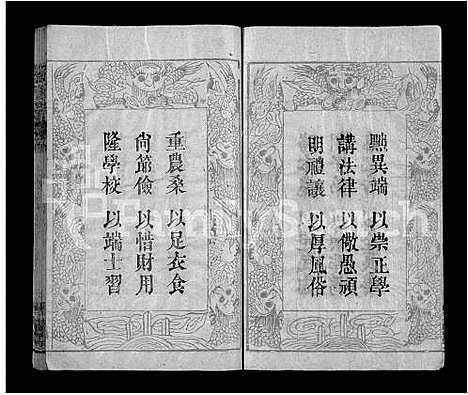 黜異端以崇正學
講法律以儆愚頑
明禮讓以厚風俗
重農桑以足衣食
尚節儉以惜財用
隆學校以端士習
FamilySearch